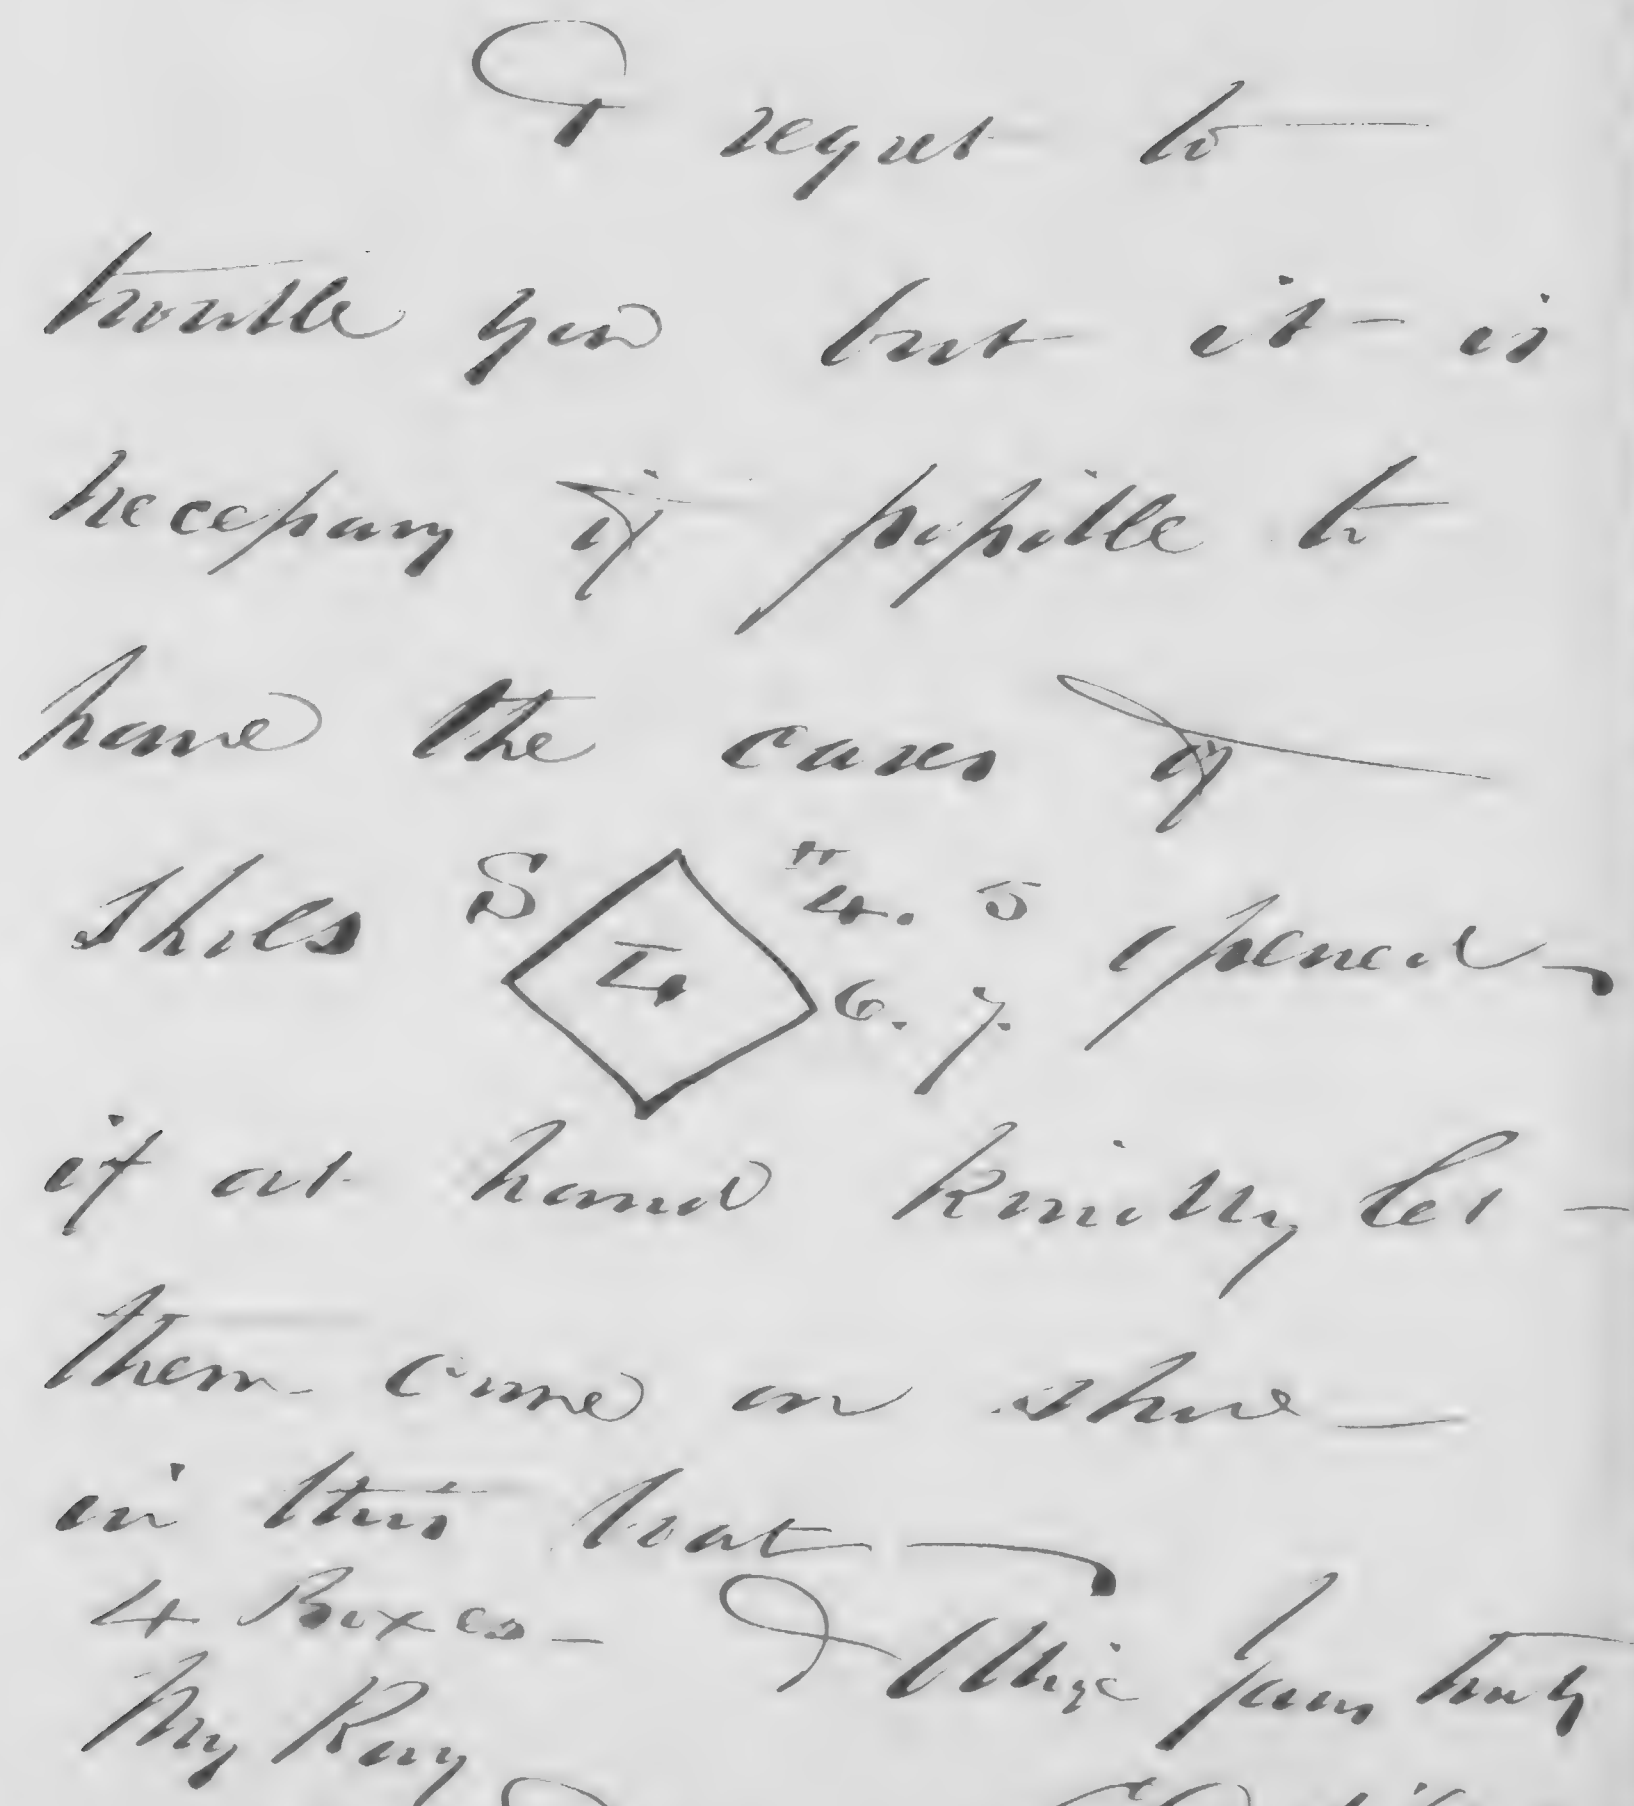 I regret to
trouble you but it is
necessary if possible to
have the cases of
Shoes S L 4. 5 opened
6. 7.
if at hand kindly let
them come on shore
in this boat
4 Boxes
& Oblige yours truly
My Kay